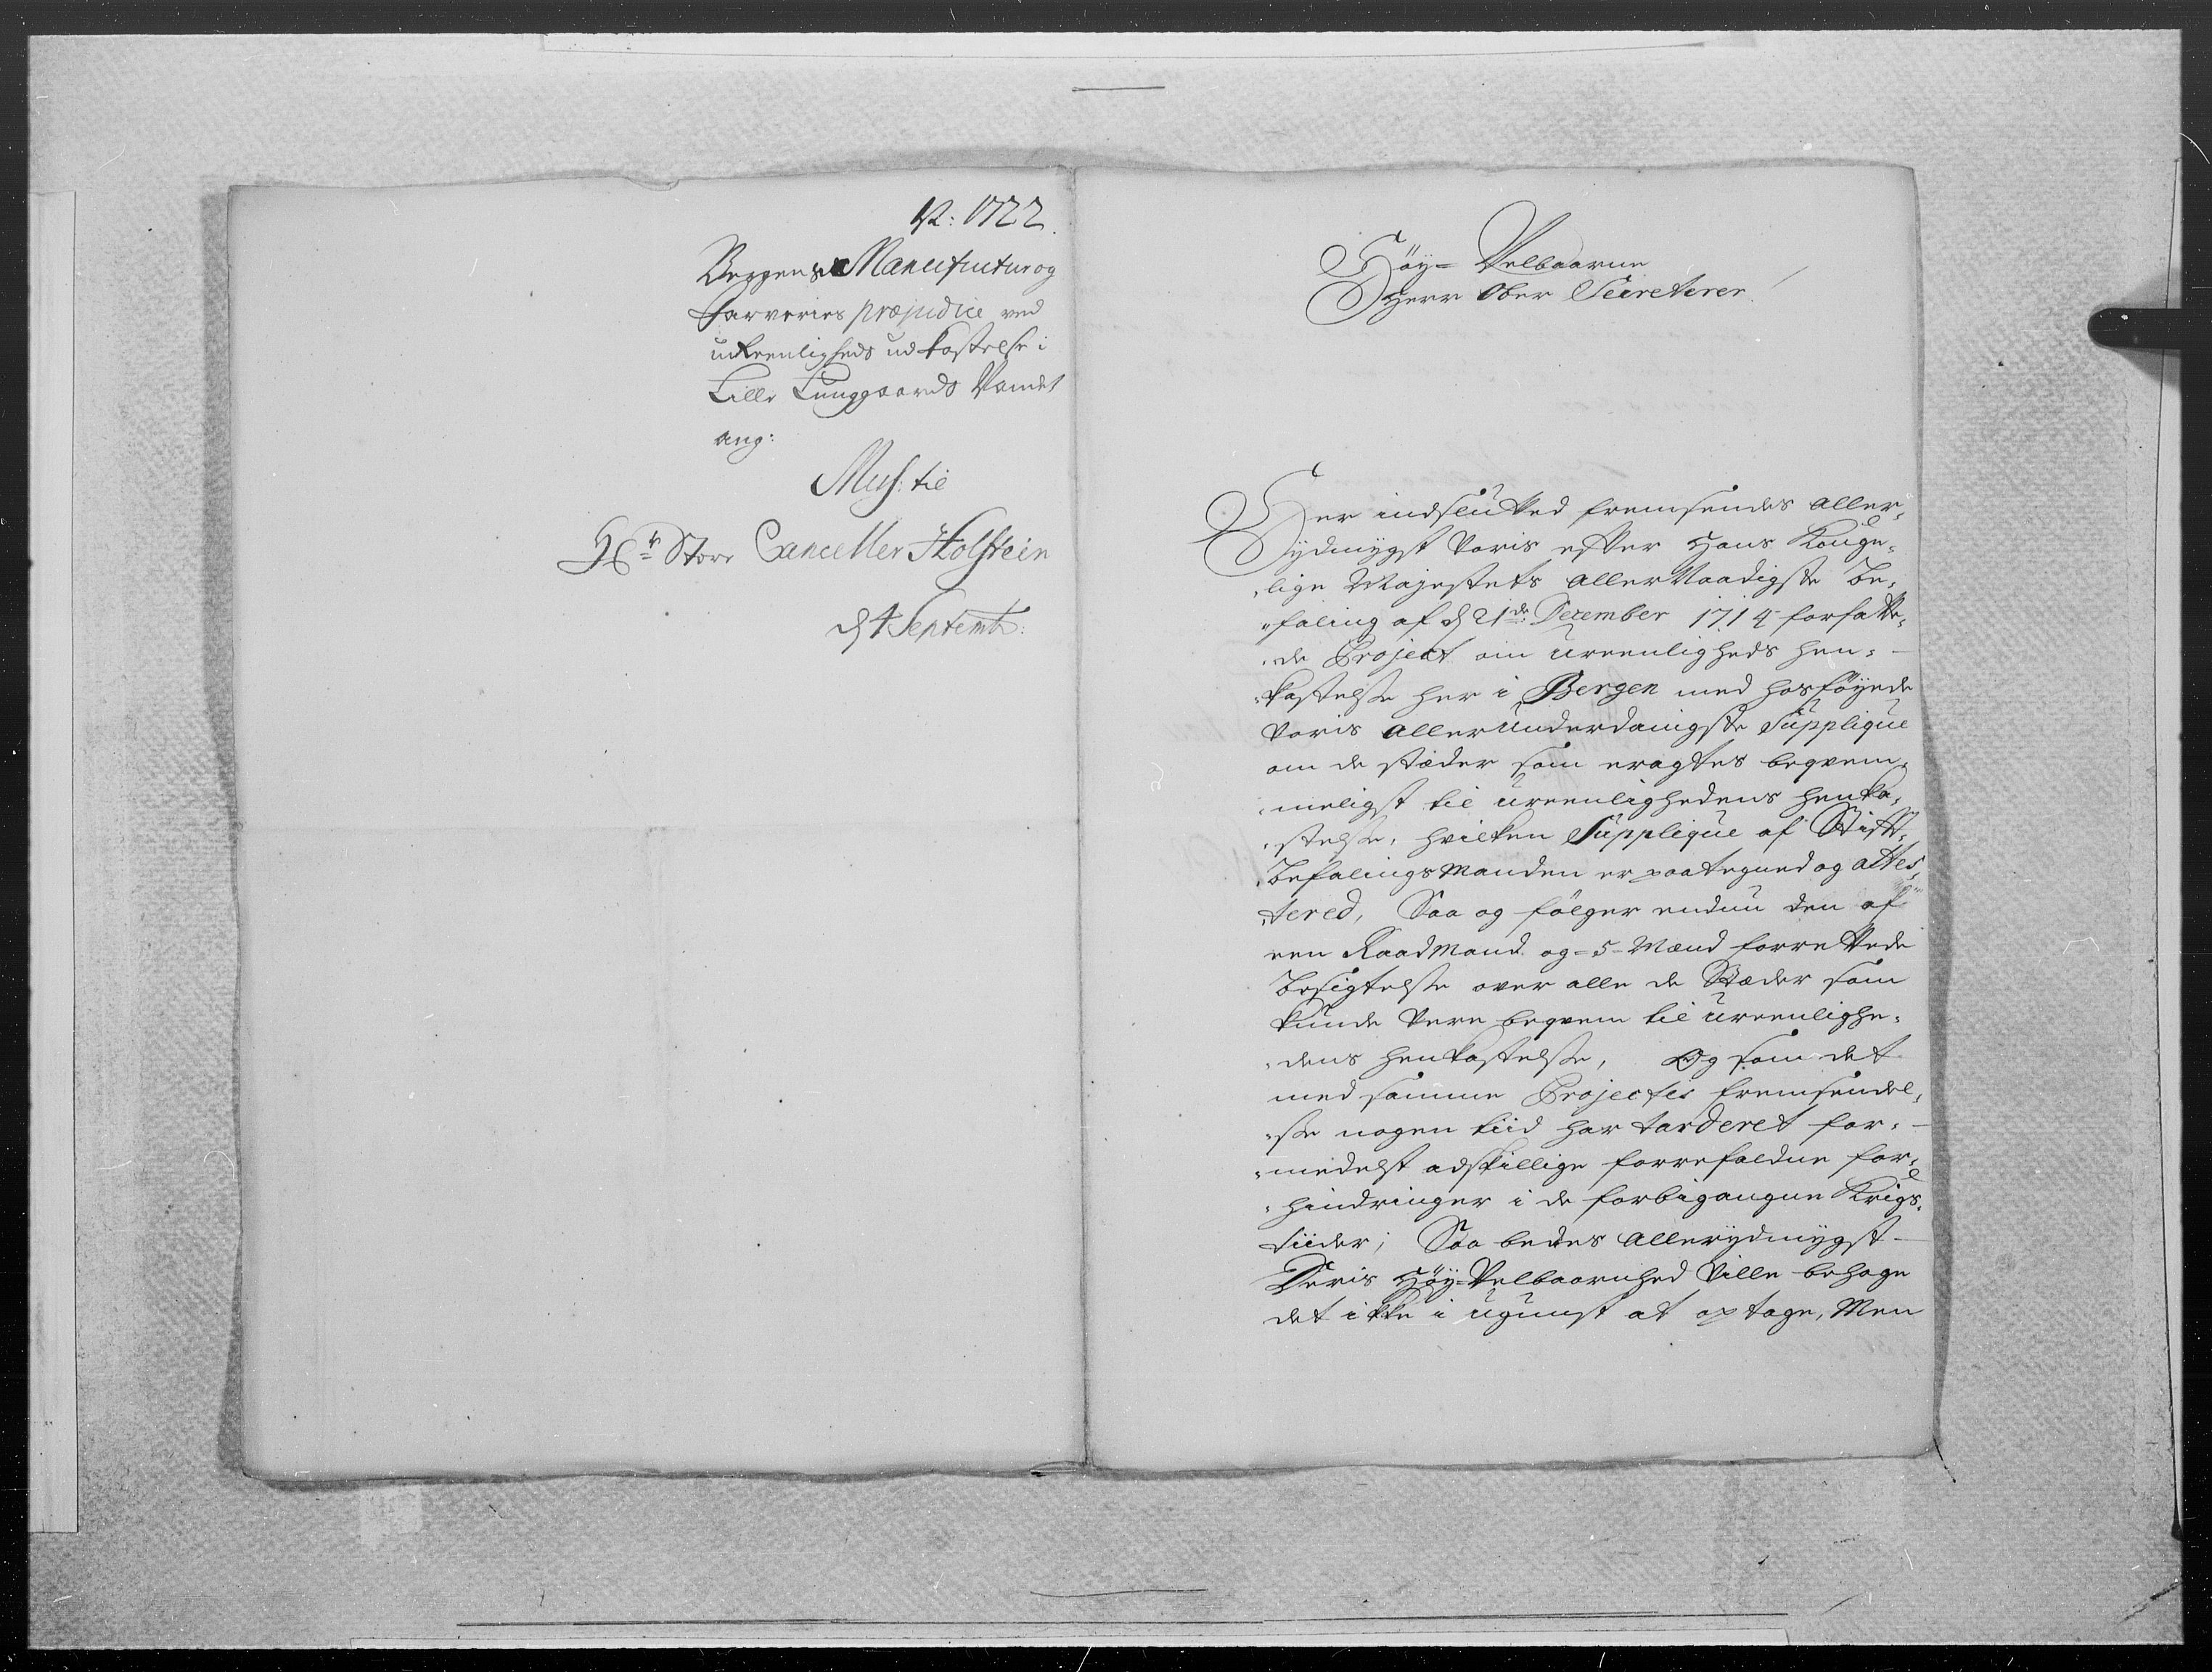 A: 1722.
Bergens Manufactur og
Farveries præjudice ved
ureenligheds udkastelse i
Lille Lunggaards Vandet
ang:
Miss: til
Hr Stor Canceller Holstein
d 4 Septemb:
Höy= Velbaarne
Herr Ober Secreterer.
Her indslutted fremsendes aller¸
ydmygst voris efter Hans Konge¸
¸lige Majestets allerNaadigste be¸
¸faling af d 21de: Dezember 1714 forfatte¸
¸de Project om ureenligheds hen¸
¸kastelse her i Bergen med hosföyede
voris allerunderdanigste Supplique
om de stæder som eragtes beqvem¸
¸meligst til ureenlighedens henka¸
¸stelse, hvilken Supplique af Stift¸
¸befalingsmanden er paategned og attes¸
¸tered, Saa og fölger endnu den af
een Raadmand og =5= Mænd forrettede
besigtelse over alle de Stæder som
kunde være beqvem til ureenlighe¸
¸dens henkastelse, Og som det
med samme Projectes fremsendel¸
¸se nogen tiid har tarderet for¸
¸medelst adskillige forrefaldne for¸
¸hindringer i de forbigangne Krigs¸
tiider; Saa bedes allerydmygst
Deris Höy=Velbaarnhed ville behage
det ikke i ugunst at optage, Men